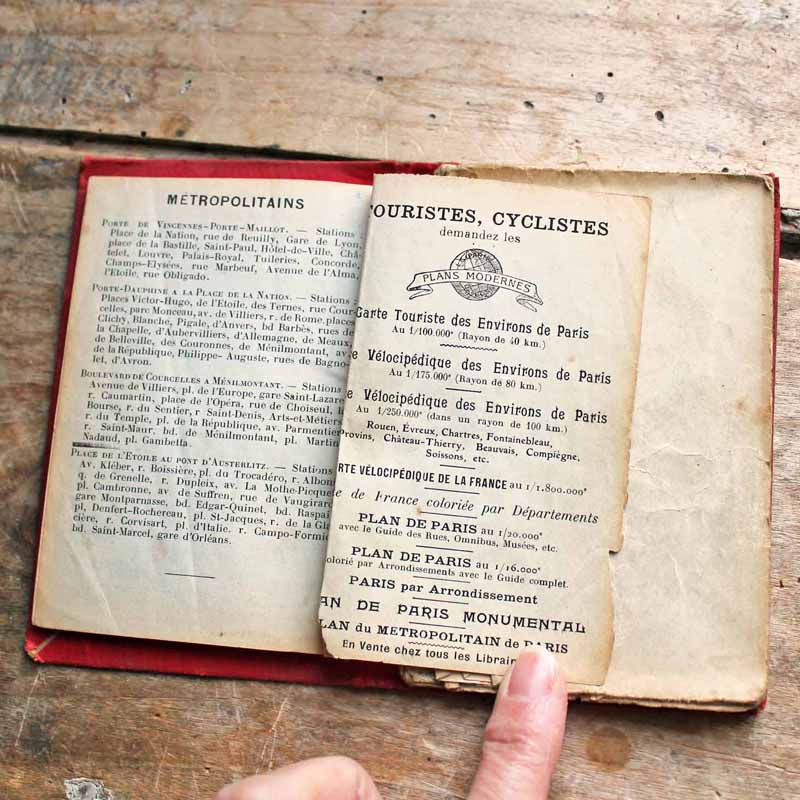 MÉTROPOLITAINS
PORTE DE VINCENNES-PORTE-MAILLOT. — Stations :
Place de la Nation, rue de Reuilly, Gare de Lyon,
place de la Bastille, Saint-Paul, Hôtel-de-Ville, Châ-
telet, Louvre, Palais-Royal, Tuileries, Concorde,
Champs-Elysées, rue Marbeuf, Avenue de l'Alma,
l'Etoile, rue Obligado.
PORTE-DAUPHINE A LA PLACE DE LA NATION. — Stations :
Places Victor-Hugo, de l'Etoile, des Ternes, rue Cour-
celles, parc Monceau, av. de Villiers, r. de Rome, places
Clichy, Blanche, Pigale, d'Anvers, bd Barbès, rues de
la Chapelle, d'Aubervilliers, d'Allemagne, de Meaux,
de Belleville, des Couronnes, de Ménilmontant, av.
de la République, Philippe-Auguste, rues de Bagno-
let, d'Avron.
BOULEVARD DE COURCELLES A MÉNILMONTANT. — Stations
Avenue de Villiers, pl. de l'Europe, gare Saint-Lazare
r. Caumartin, place de l'Opéra, rue de Choiseul, l
Bourse, r. du Sentier, r. Saint-Denis, Arts-et-Métiers
r. du Temple, pl. de la République, av. Parmentier
r. Saint-Maur, bd. de Ménilmontant, pl. Martin
Nadaud, pl. Gambetta.
PLACE DE L'ÉTOILE AU PONT D'AUSTERLITZ. — Stations
Av. Kléber, r. Boissière, pl. du Trocadéro, r. Alboni
q. de Grenelle, r. Dupleix, av. La Mothe-Picquet
pl. Cambronne, av. de Suffren, rue de Vaugirard
gare Montparnasse, bd. Edgar-Quinet, bd. Raspai
pl, Denfert-Rochereau, pl. St-Jacques, r. de la Gla
cière, r. Corvisart, pl. d'Italie. r. Campo-Formio
bd. Saint-Marcel, gare d'Orléans.
TOURISTES, CYCLISTES
demandez les
PLANS MODERNES
Carte Touriste des Environs de Paris
Au 1/100.000e (Rayon de 40 km.)
e Vélocipédique des Environs de Paris
Au 1/175.000e (Rayon de 80 km.)
e Vélocipédique des Environs de Paris
Au 1/250.000e (dans un rayon de 100 km.)
Rouen, Évreux, Chartres, Fontainebleau,
Provins, Château-Thierry, Beauvais, Compiègne,
Soissons, etc.
RTE VÉLOCIPÉDIQUE DE LA FRANCE au 1/1.800.000e
e de France coloriée par Départements
PLAN DE PARIS au 1/20.000e
avec le Guide des Rues, Omnibus, Musées, etc.
PLAN DE PARIS au 1/16.000e
olorié par Arrondissements avec le Guide complet.
PARIS par Arrondissement
AN DE PARIS MONUMENTAL
LAN du METROPOLITAIN de PARIS
En Vente chez tous les Librair